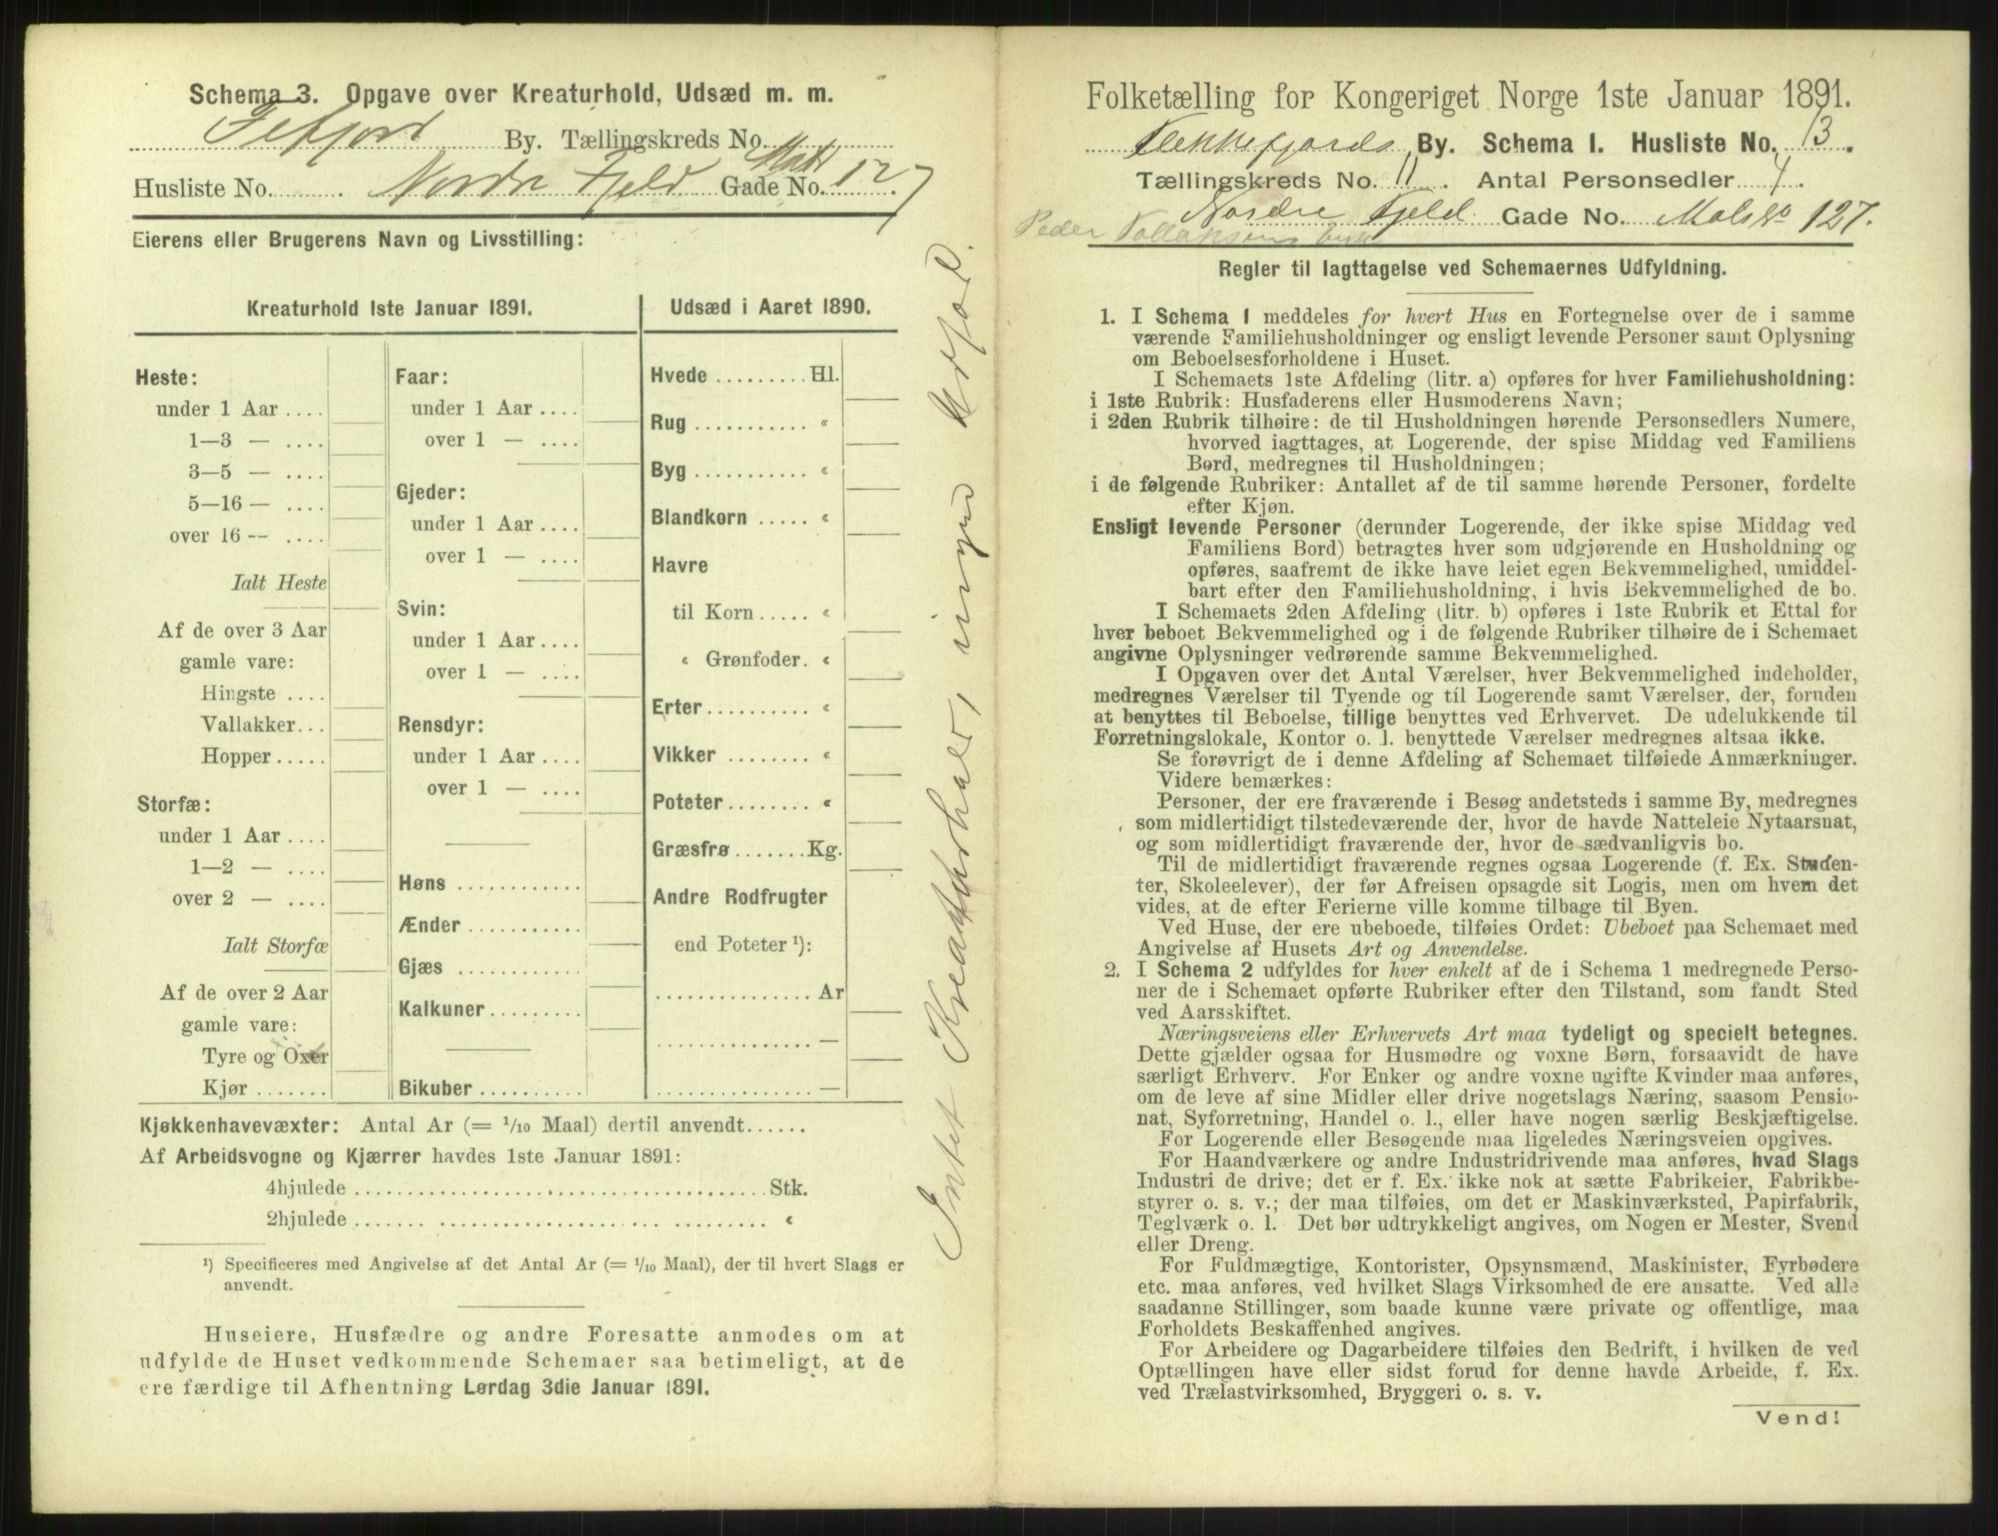 Schema 3. Opgave over Kreaturhold, Udsæd m. m.
By. Tællingskreds No.
Husliste No. Nordre Fjeld Gade No. 127
Eierens eller Brugerens Navn og Livsstilling:
Kreaturhold 1ste Januar 1891.
Heste:
under 1 Aar ....
1—3 — ....
3—5 — ....
5—16 — ....
over 16 — ....
Ialt Heste
Af de over 3 Aar
gamle vare:
Hingste ....
Vallakker...
Hopper .....
Storfæ:
under 1 Aar ....
1—2 — ....
over 2 — ....
Ialt Storfæ
Af de over 2 Aar
gamle vare:
Tyre og Oxer
Kjør .......
Faar:
under 1 Aar ....
over 1 — ....
Gjeder:
under 1 Aar ....
over 1 — ....
Svin:
under 1 Aar ....
over 1 — ....
Rensdyr:
under 1 Aar ....
over 1 — ....
Høns ............
Ænder ...........
Gjæs ............
Kalkuner.........
Bikuber ..........
Udsæd i Aaret 1890.
Hvede .........Hl.
Rug ........... «
Byg ........... «
Blandkorn ..... «
Havre
til Korn ..... «
« Grønfoder. «
Erter.......... «
Vikker ........ «
Poteter ....... «
Græsfrø .......Kg.
Andre Rodfrugter
end Poteter ¹):
............... Ar
............... —
............... —
Kjøkkenhavevæxter: Antal Ar (= 1/10 Maal) dertil anvendt......
Af Arbeidsvogne og Kjærrer havdes 1ste Januar 1891:
4hjulede ........................................ Stk.
2hjulede ........................................ «
¹) Specificeres med Angivelse af det Antal Ar (= 1/10 Maal), der til hvert Slags er
anvendt.
Huseiere, Husfædre og andre Foresatte anmodes om at
udfylde de Huset vedkommende Schemaer saa betimeligt, at de
ere færdige til Afhentning Lørdag 3die Januar 1891.
Intet Kreaturhold, ingen Udsæd.
Folketælling for Kongeriget Norge 1ste Januar 1891.
Flekkefjords By. Schema 1. Husliste No. 13.
Tællingskreds No. 11. Antal Personsedler 4.
Nordre Fjeld Gade No. 127.
Peder
Regler til Iagttagelse ved Schemaernes Udfyldning.
1. I Schema 1 meddeles for hvert Hus en Fortegnelse over de i samme
værende Familiehusholdninger og ensligt levende Personer samt Oplysning
om Beboelsesforholdene i Huset.
I Schemaets 1ste Afdeling (litr. a) opføres for hver Familiehusholdning:
i 1ste Rubrik: Husfaderens eller Husmoderens Navn;
i 2den Rubrik tilhøire: de til Husholdningen hørende Personsedlers Numere,
hvorved iagttages, at Logerende, der spise Middag ved Familiens
Bord, medregnes til Husholdningen;
i de følgende Rubriker: Antallet af de til samme hørende Personer, fordelte
efter Kjøn.
Ensligt levende Personer (derunder Logerende, der ikke spise Middag ved
Familiens Bord) betragtes hver som udgjørende en Husholdning og
opføres, saafremt de ikke have leiet egen Bekvemmelighed, umiddel-
bart efter den Familiehusholdning, i hvis Bekvemmelighed de bo.
I Schemaets 2den Afdeling (litr. b) opføres i 1ste Rubrik et Ettal for
hver beboet Bekvemmelighed og i de følgende Rubriker tilhøire de i Schemaet
angivne Oplysninger vedrørende samme Bekvemmelighed.
I Opgaven over det Antal Værelser, hver Bekvemmelighed indeholder,
medregnes Værelser til Tyende og til Logerende samt Værelser, der, foruden
at benyttes til Beboelse, tillige benyttes ved Erhvervet. De udelukkende til
Forretningslokale, Kontor o. l. benyttede Værelser medregnes altsaa ikke.
Se forøvrigt de i denne Afdeling af Schemaet tilføiede Anmærkninger.
Videre bemærkes:
Personer, der ere fraværende i Besøg andetsteds i samme By, medregnes
som midlertidigt tilstedeværende der, hvor de havde Natteleie Nytaarsnat,
og som midlertidigt fraværende der, hvor de sædvanligvis bo.
Til de midlertidigt fraværende regnes ogsaa Logerende (f. Ex. Studen-
ter, Skoleelever), der før Afreisen opsagde sit Logis, men om hvem det
vides, at de efter Ferierne ville komme tilbage til Byen.
Ved Huse, der ere ubeboede, tilføies Ordet: Ubeboet paa Schemaet med
Angivelse af Husets Art og Anvendelse.
2. I Schema 2 udfyldes for hver enkelt af de i Schema 1 medregnede Perso-
ner de i Schemaet opførte Rubriker efter den Tilstand, som fandt Sted
ved Aarsskiftet.
Næringsveiens eller Erhvervets Art maa tydeligt og specielt betegnes.
Dette gjælder ogsaa for Husmødre og voxne Børn, forsaavidt de have
særligt Erhverv. For Enker og andre voxne ugifte Kvinder maa anføres,
om de leve af sine Midler eller drive nogetslags Næring, saasom Pensio-
nat, Syforretning, Handel o. l., eller have nogen særlig Beskjæftigelse.
For Logerende eller Besøgende maa ligeledes Næringsveien opgives.
For Haandværkere og andre Industridrivende maa anføres, hvad Slags
Industri de drive; det er f. Ex. ikke nok at sætte Fabrikeier, Fabrikbe-
styrer o. s. v.; der maa tilføies, om det er Maskinværksted, Papirfabrik,
Teglværk o. l. Det bør udtrykkeligt angives, om Nogen er Mester, Svend
eller Dreng.
For Fuldmægtige, Kontorister, Opsynsmænd, Maskinister, Fyrbødere
etc. maa anføres, ved hvilket Slags Virksomhed de ere ansatte. Ved alle
saadanne Stillinger, som baade kunne være private og offentlige, maa
Forholdets Beskaffenhed angives.
For Arbeidere og Dagarbeidere tilføies den Bedrift, i hvilken de ved
Optællingen have eller sidst forud for denne havde Arbeide, f. Ex.
ved Trælastvirksomhed, Bryggeri o. s. v.
Vend!